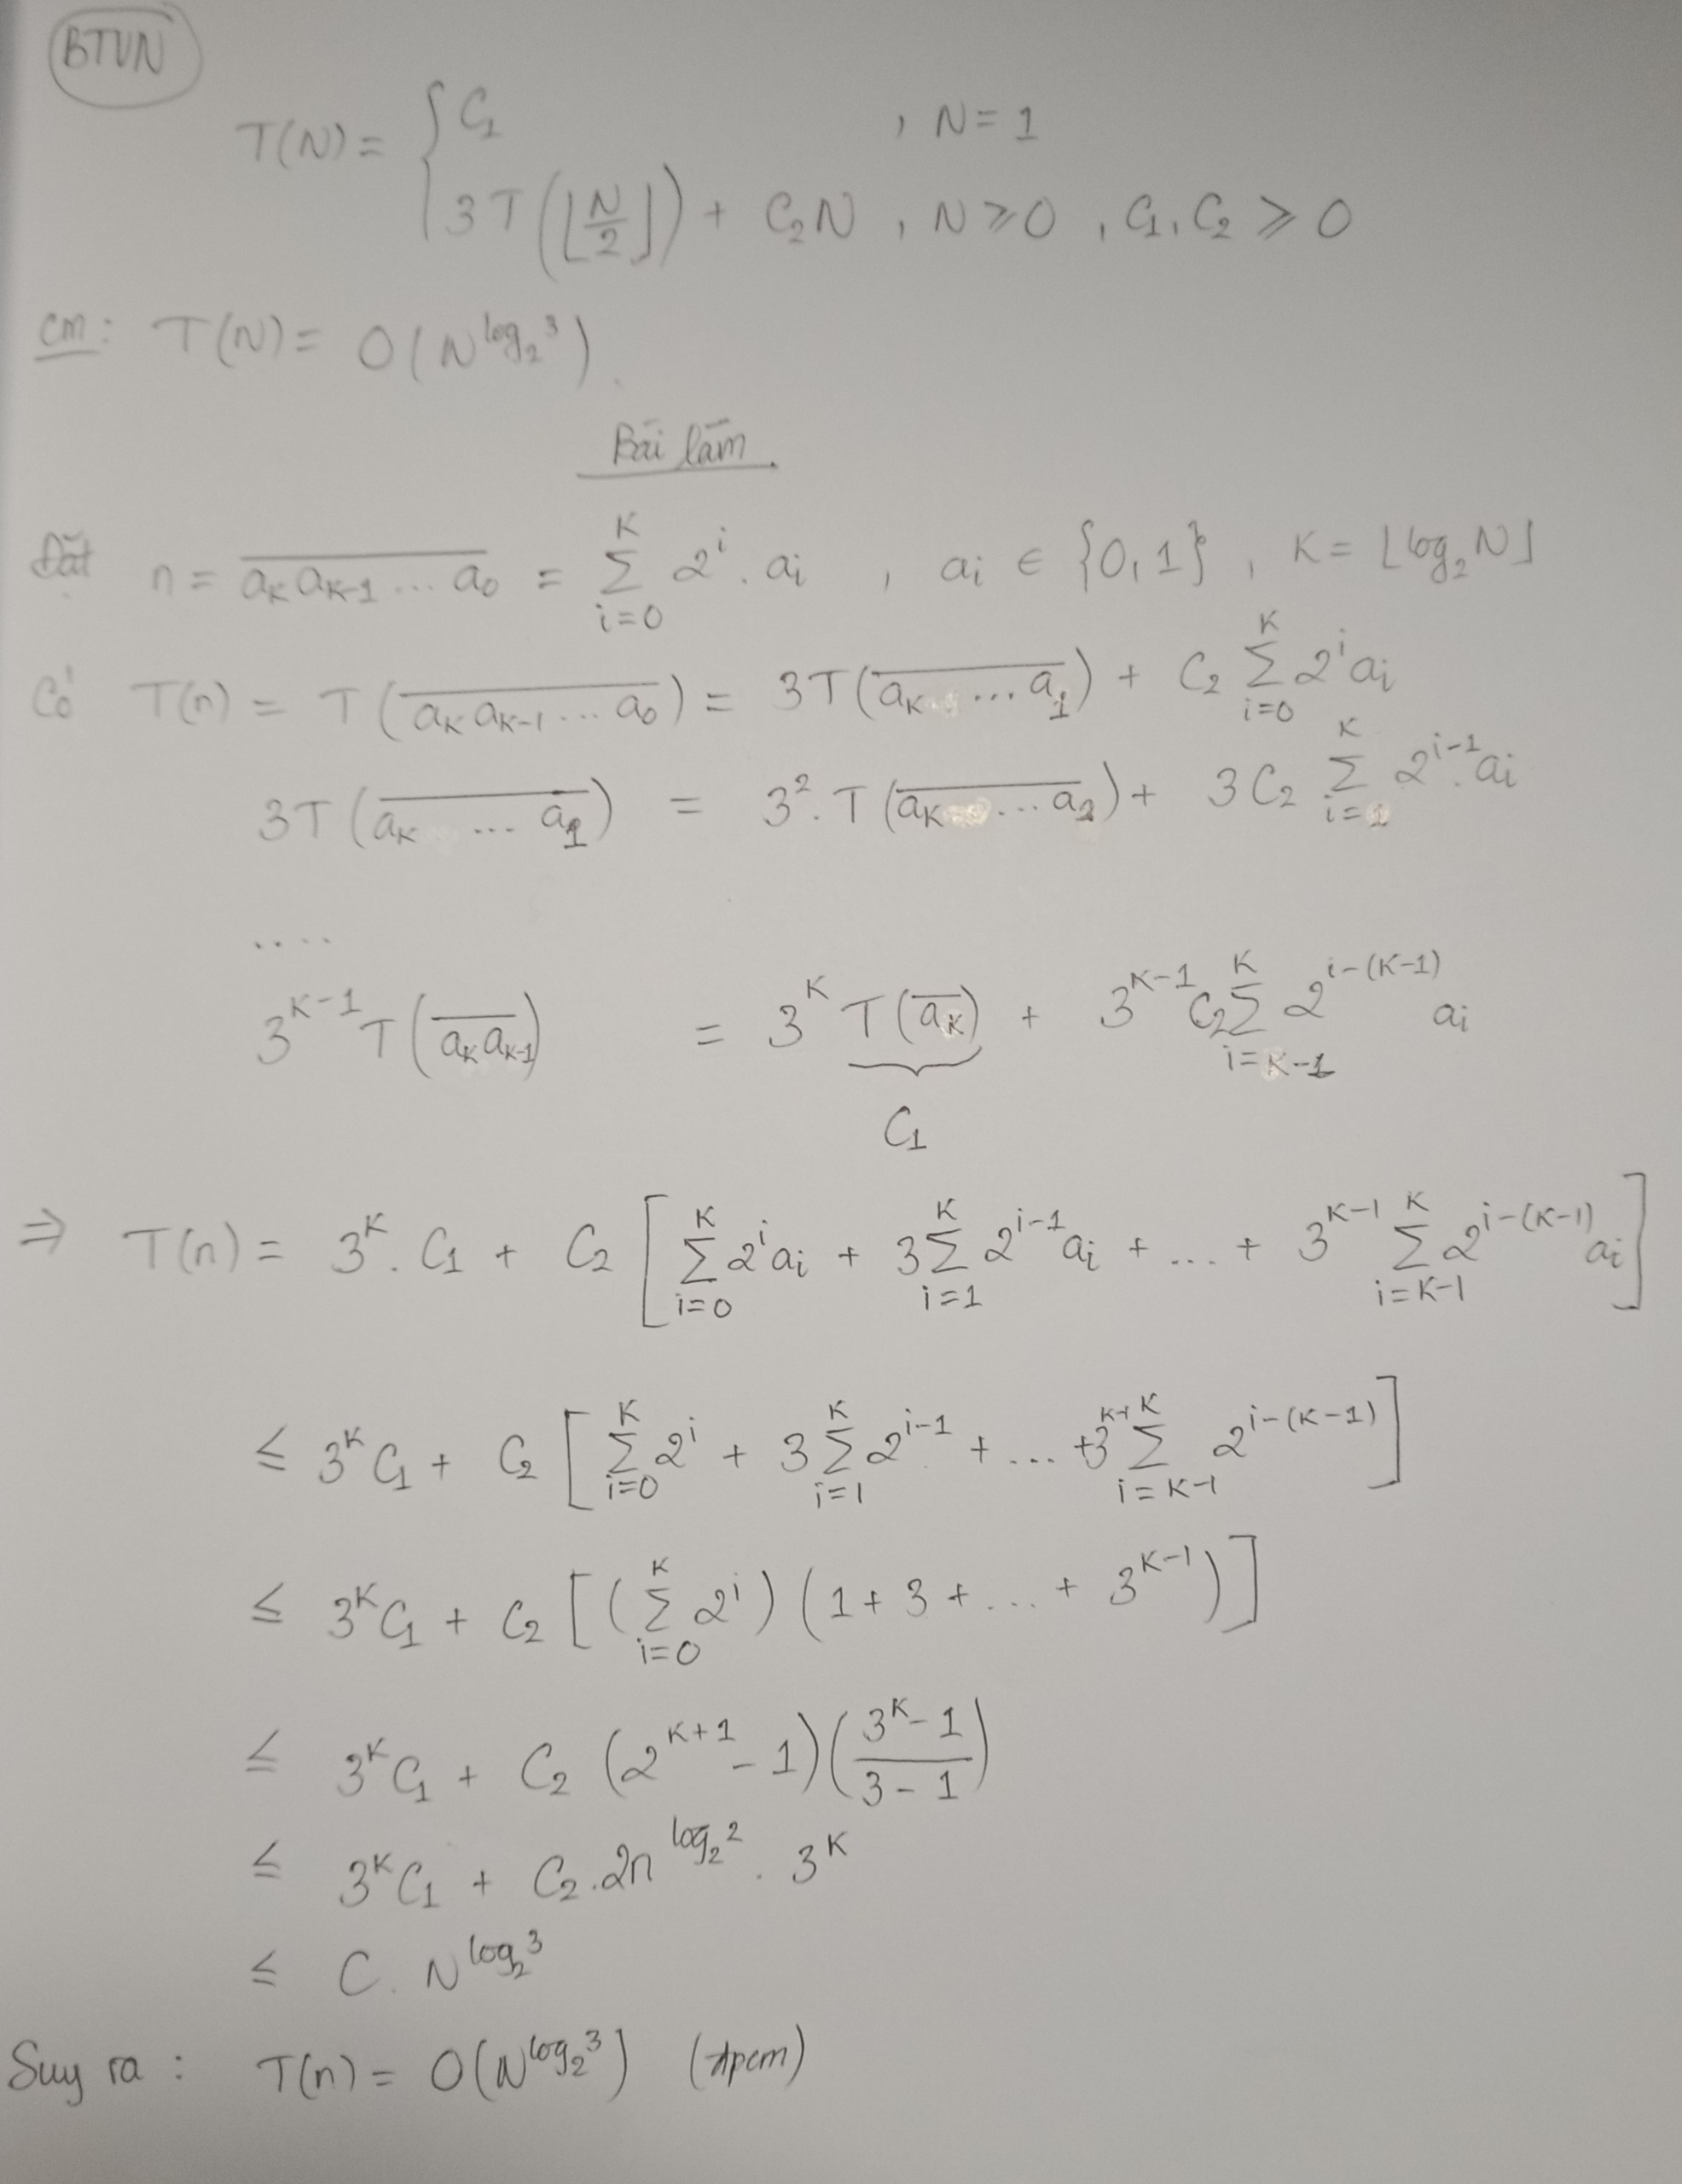 BTVN
T(N) = { C₁ , N = 1
3T(⌊N/2⌋) + C₂N , N ⩾ 0 , C₁, C₂ ⩾ 0
cm: T(N) = O(N^{log₂3}).
Bài làm.
Đặt n = \overline{a_K a_{K-1} ... a_0} = ∑_{i=0}^{K} 2^i . a_i , a_i ∈ {0, 1} , K = ⌊log₂N⌋
Có T(n) = T(\overline{a_K a_{K-1} ... a_0}) = 3T(\overline{a_K ... a_1}) + C₂ ∑_{i=0}^{K} 2^i a_i
3T(\overline{a_K ... a_1}) = 3². T(\overline{a_K ... a_2}) + 3C₂ ∑_{i=1}^{K} 2^{i-1}. a_i
....
3^{K-1} T(\overline{a_K a_{K-1}}) = 3^K T(\overline{a_K}) + 3^{K-1} C₂ ∑_{i=K-1}^{K} 2^{i-(K-1)} a_i
C₁
⇒ T(n) = 3^K. C₁ + C₂ [ ∑_{i=0}^{K} 2^i a_i + 3∑_{i=1}^{K} 2^{i-1} a_i + ... + 3^{K-1} ∑_{i=K-1}^{K} 2^{i-(K-1)} a_i ]
≤ 3^K C₁ + C₂ [ ∑_{i=0}^{K} 2^i + 3∑_{i=1}^{K} 2^{i-1} + ... + 3^{K-1} ∑_{i=K-1}^{K} 2^{i-(K-1)} ]
≤ 3^K C₁ + C₂ [ (∑_{i=0}^{K} 2^i) (1 + 3 + ... + 3^{K-1}) ]
≤ 3^K C₁ + C₂ (2^{K+1} - 1) ((3^K - 1)/(3 - 1))
≤ 3^K C₁ + C₂. 2n^{log₂2} . 3^K
≤ C. N^{log₂3}
Suy ra : T(n) = O(N^{log₂3}) (đpcm)